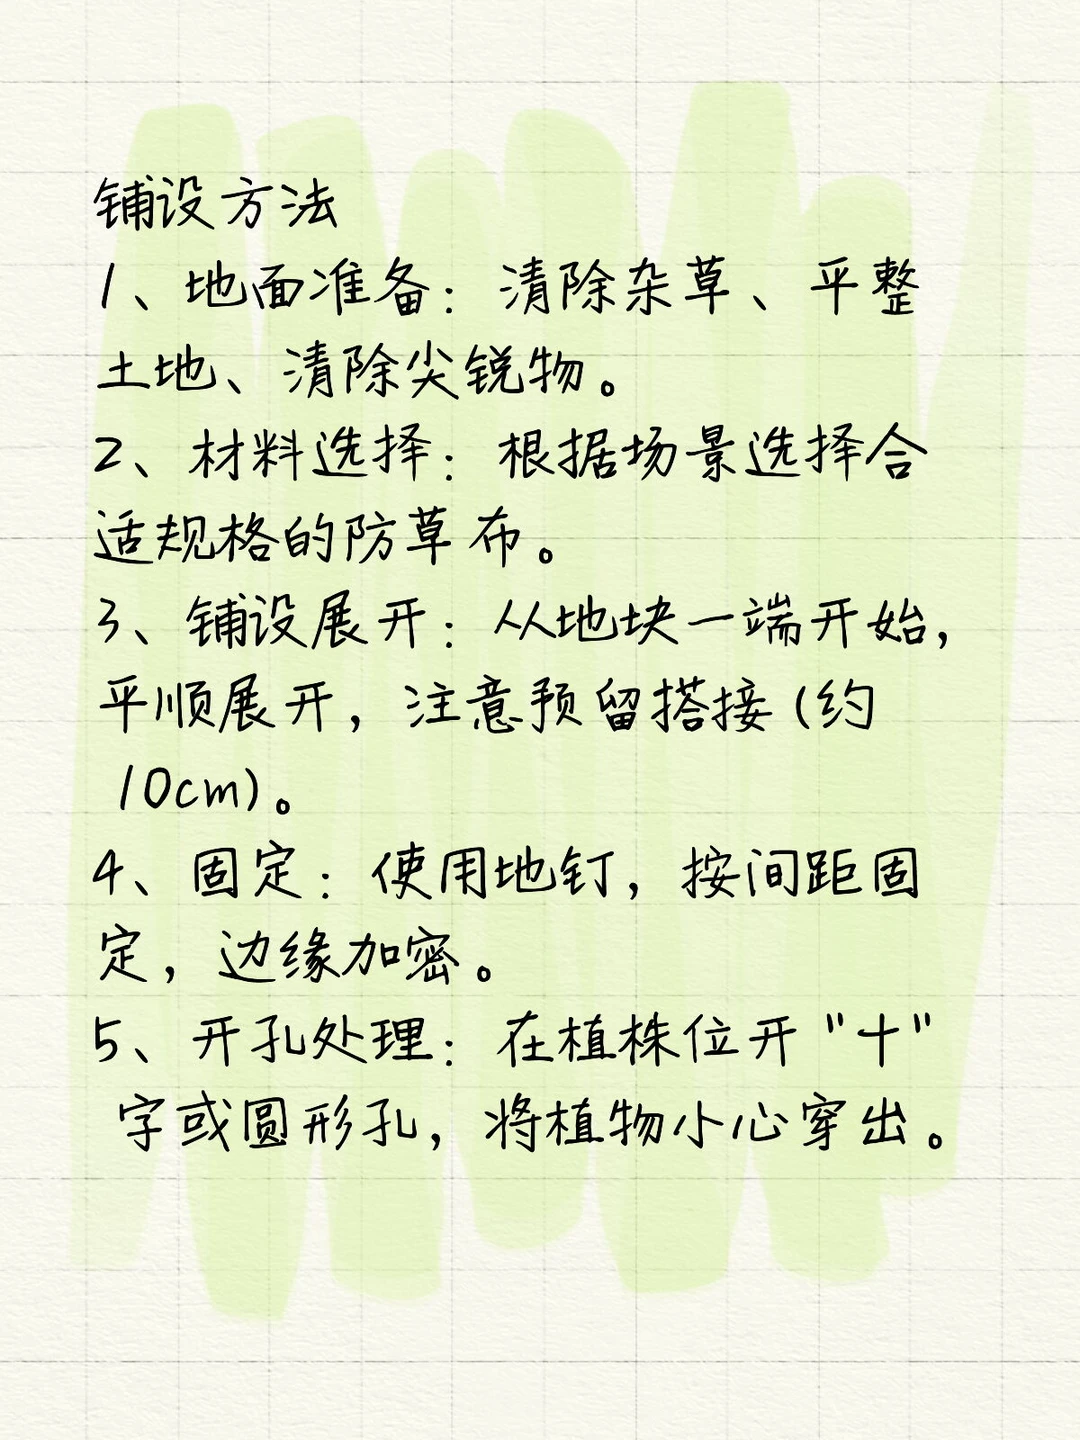 铺设方法
1、地面准备：清除杂草、平整
土地、清除尖锐物。
2、材料选择：根据场景选择合
适规格的防草布。
3、铺设展开：从地块一端开始，
平顺展开，注意预留搭接(约
10cm)。
4、固定：使用地钉，按间距固
定，边缘加密。
5、开孔处理：在植株位开"十"
字或圆形孔，将植物小心穿出。